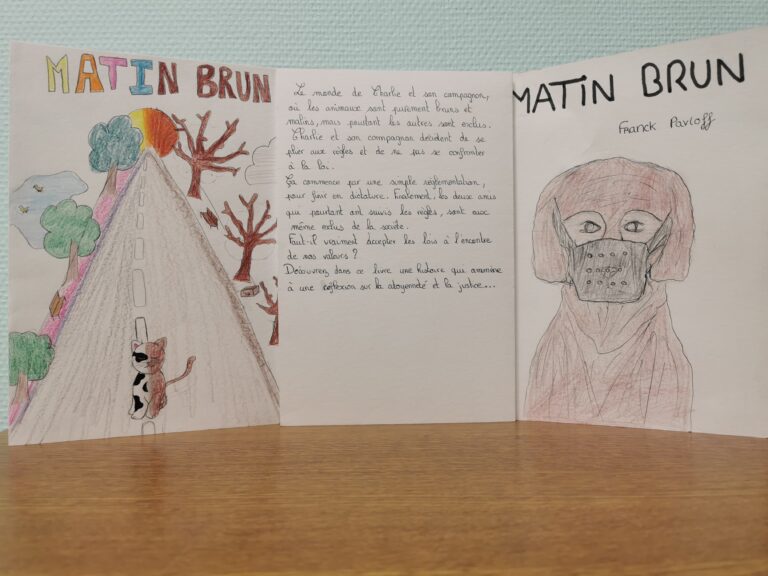 MATIN BRUN
Le monde de Charlie et son compagnon,
où les animaux sont purement bruns et
matins, mais pourtant les autres sont exclus.
Charlie et son compagnon décident de se
plier aux règles et de ne pas se confronter
à la loi.
Ça commence par une simple réglementation,
pour finir en dictature. Finalement, les deux amis
qui pourtant ont suivis les règles, sont eux
même exclus de la société.
Faut-il vraiment accepter les lois à l'encontre
de nos valeurs ?
Découvrez dans ce livre une histoire qui ammène
à une réflexion sur la citoyenneté et la justice...
MATIN BRUN
Franck Pavloff